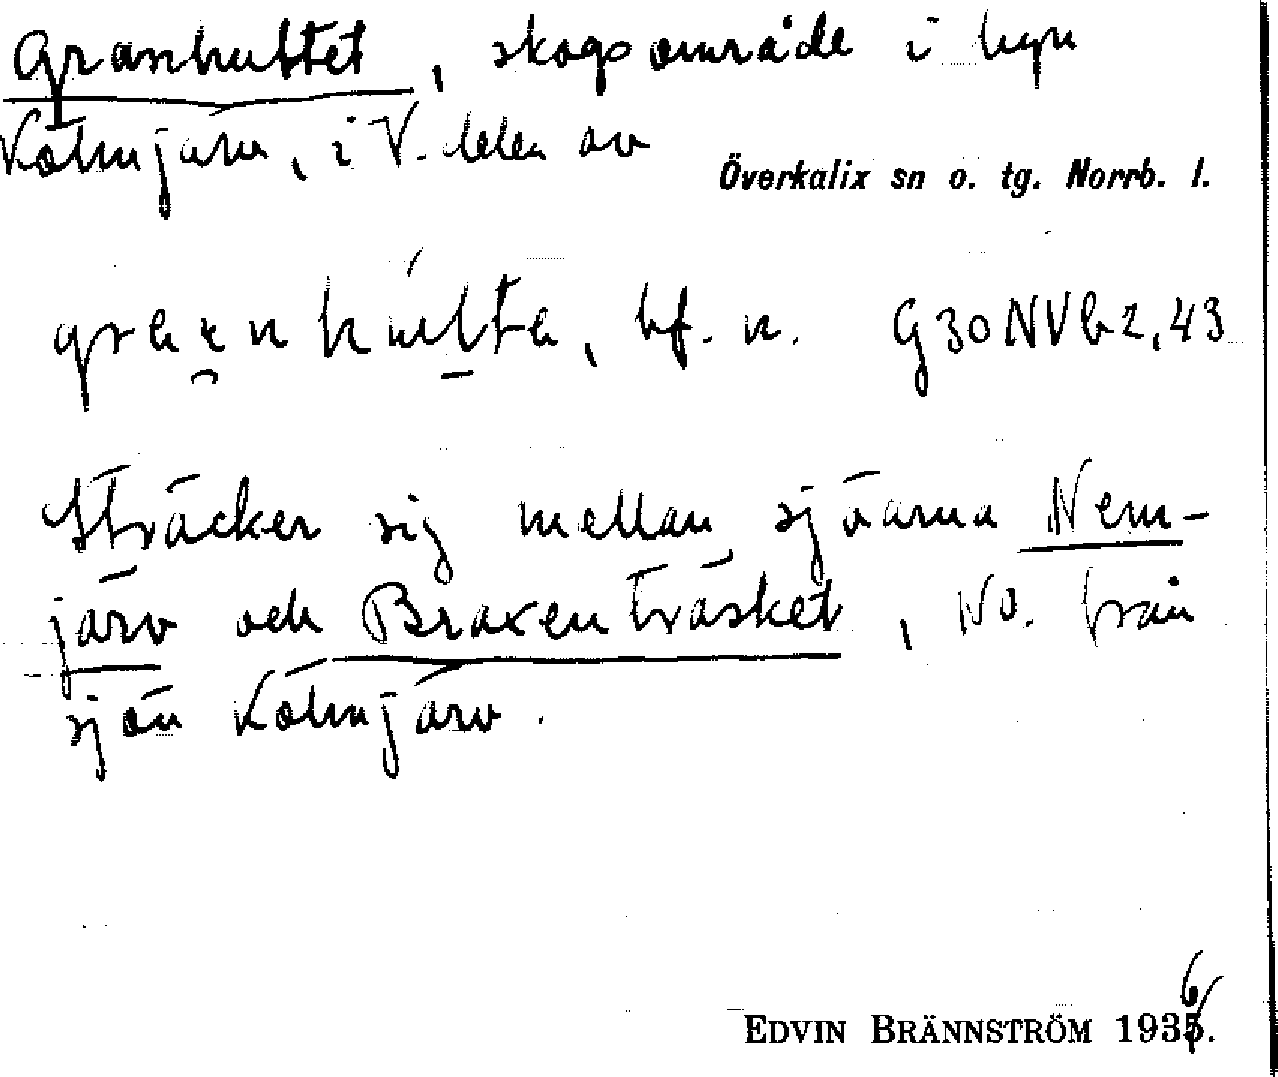 Granhultet, skogsområde i byn
Kölmjärv, i V. delen av
Överkalix sn o. tg. Norrb. l.
bf. n. G30NVb2,43
Sträcker sig mellan sjöarna Nem-
järv och Braxenträsket, NO. från
sjön Kölmjärv.
EDVIN BRÄNNSTRÖM 1936.